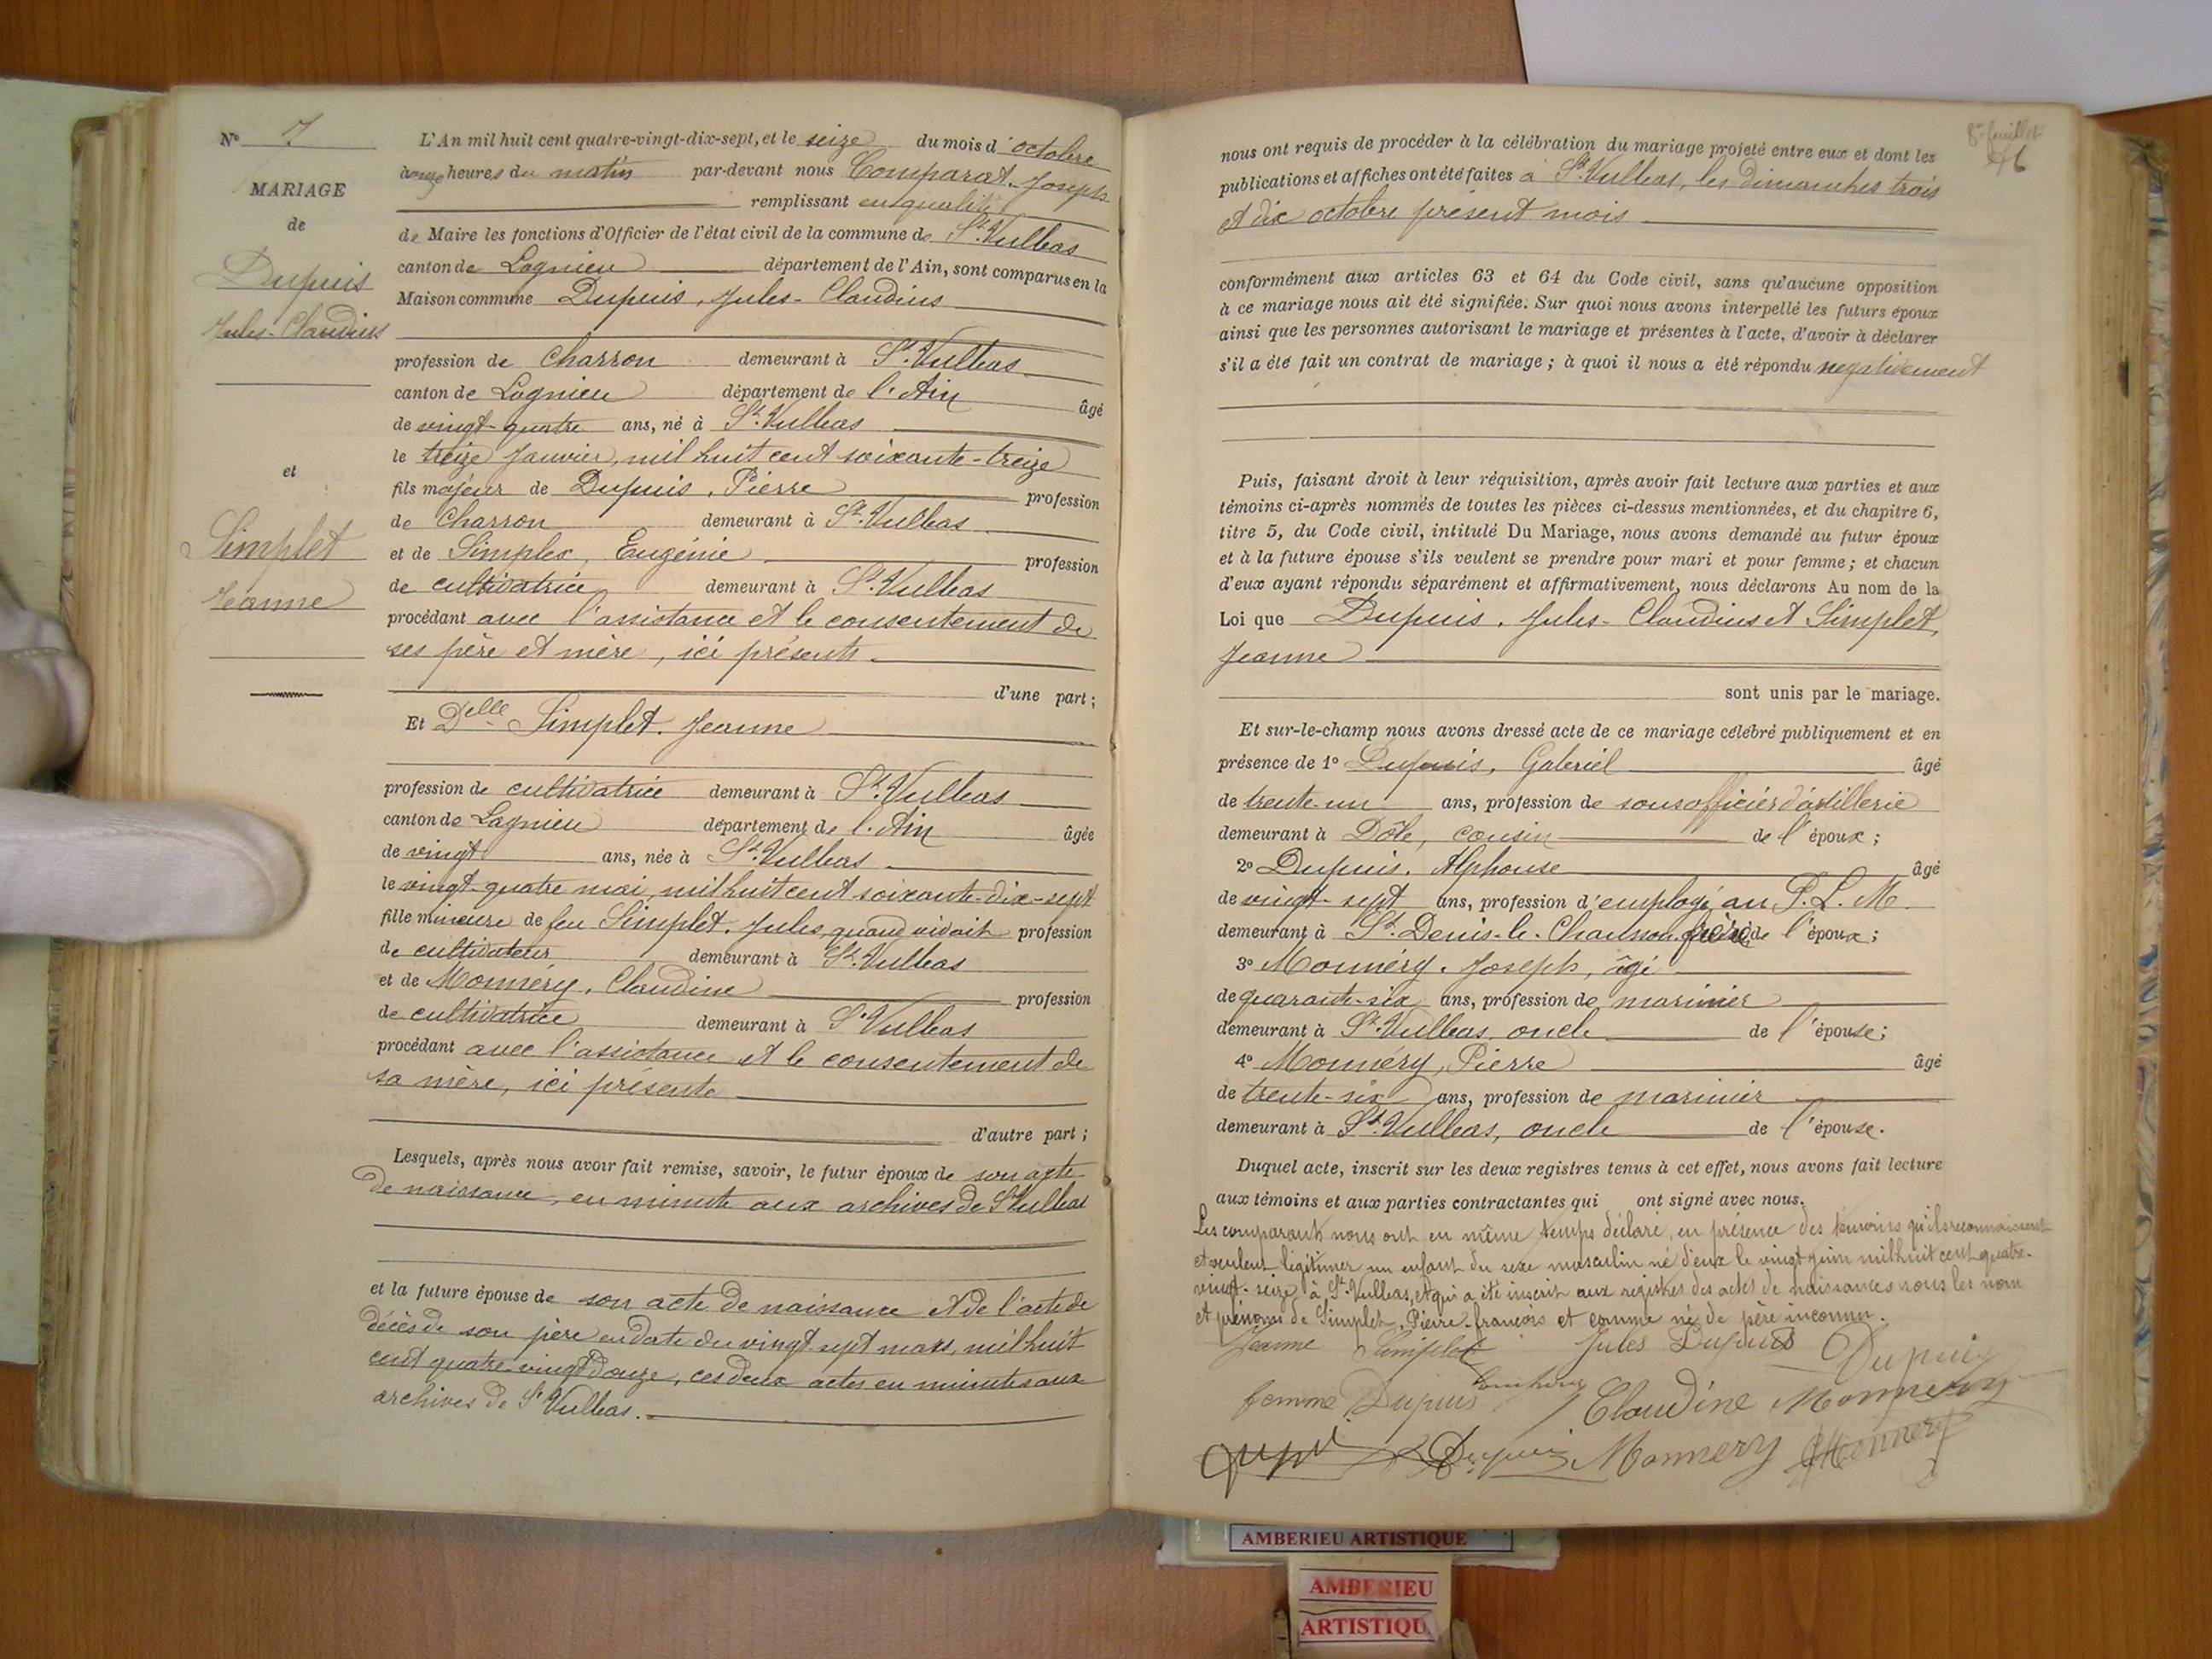 N° 7
MARIAGE
de
Dupuis
Jules-Claudius
et
Simplet
Jeanne
L'An mil huit cent quatre-vingt-dix-sept, et le seize du mois d'octobre
à onze heures du matin par-devant nous Comparat, Joseph
remplissant en qualité
de Maire les fonctions d'Officier de l'état civil de la commune de St. Vulbas
canton de Lagnieu département de l'Ain, sont comparus en la
Maison commune Dupuis, Jules-Claudius
profession de charron demeurant à St. Vulbas
canton de Lagnieu département de l'Ain âgé
de vingt-quatre ans, né à St. Vulbas
le treize Janvier, mil huit cent soixante-treize
fils majeur de Dupuis, Pierre profession
de charron demeurant à St. Vulbas
et de Simplex, Eugénie profession
de cultivatrice demeurant à St. Vulbas
procédant avec l'assistance et le consentement de
ses père et mère, ici présents
d'une part;
Et Delle Simplet, Jeanne
profession de cultivatrice demeurant à St. Vulbas
canton de Lagnieu département de l'Ain âgée
de vingt ans, née à St. Vulbas
le vingt-quatre mai, mil huit cent soixante-dix-sept
fille mineure de feu Simplet, Jules, quand vivait profession
de cultivateur demeurant à St. Vulbas
et de Monnéry, Claudine profession
de cultivatrice demeurant à St. Vulbas
procédant avec l'assistance et le consentement de
sa mère, ici présente
d'autre part;
Lesquels, après nous avoir fait remise, savoir, le futur époux de son acte
de naissance, en minute aux archives de St Vulbas
et la future épouse de son acte de naissance et de l'acte de
décès de son père en date du vingt-sept mars, mil huit
cent quatre vingt douze, ces deux actes en minutes aux
archives de St Vulbas.
8me feuillet
46
nous ont requis de procéder à la célébration du mariage projeté entre eux et dont les
publications et affiches ont été faites à St. Vulbas, les dimanches trois
et dix octobre présent mois
conformément aux articles 63 et 64 du Code civil, sans qu'aucune opposition
à ce mariage nous ait été signifiée. Sur quoi nous avons interpellé les futurs époux
ainsi que les personnes autorisant le mariage et présentes à l'acte, d'avoir à déclarer
s'il a été fait un contrat de mariage; à quoi il nous a été répondu négativement
Puis, faisant droit à leur réquisition, après avoir fait lecture aux parties et aux
témoins ci-après nommés de toutes les pièces ci-dessus mentionnées, et du chapitre 6,
titre 5, du Code civil, intitulé Du Mariage, nous avons demandé au futur époux
et à la future épouse s'ils veulent se prendre pour mari et pour femme; et chacun
d'eux ayant répondu séparément et affirmativement, nous déclarons Au nom de la
Loi que Dupuis, Jules-Claudius et Simplet,
Jeanne
sont unis par le mariage.
Et sur-le-champ nous avons dressé acte de ce mariage célébré publiquement et en
présence de 1° Dupuis, Gabriel âgé
de trente-un ans, profession de sous officier d'artillerie
demeurant à Dôle, cousin de l'époux;
2° Dupuis, Alphonse âgé
de vingt-sept ans, profession d'employé au P. L. M.
demeurant à St. Denis-le-Chausson frère de l'époux;
3° Monnéry, Joseph, âgé
de quarante-six ans, profession de marinier
demeurant à St. Vulbas, oncle de l'épouse;
4° Monnéry, Pierre âgé
de trente-six ans, profession de marinier
demeurant à St. Vulbas, oncle de l'épouse.
Duquel acte, inscrit sur les deux registres tenus à cet effet, nous avons fait lecture
aux témoins et aux parties contractantes qui ont signé avec nous.
Les comparants nous ont en même temps déclaré, en présence des témoins qu'ils reconnaissent
et veulent légitimer un enfant du sexe masculin né d'eux le vingt juin mil huit cent quatre-
vingt-seize à St. Vulbas, et qui a été inscrit aux registres des actes de naissances sous les nom
et prénoms de Simplet, Pierre-françois et comme né de père inconnu.
Jeanne Simplet Jules Dupuis Dupuis
femme Dupuis Claudine Monnery
Dupuis Monnery Monnery